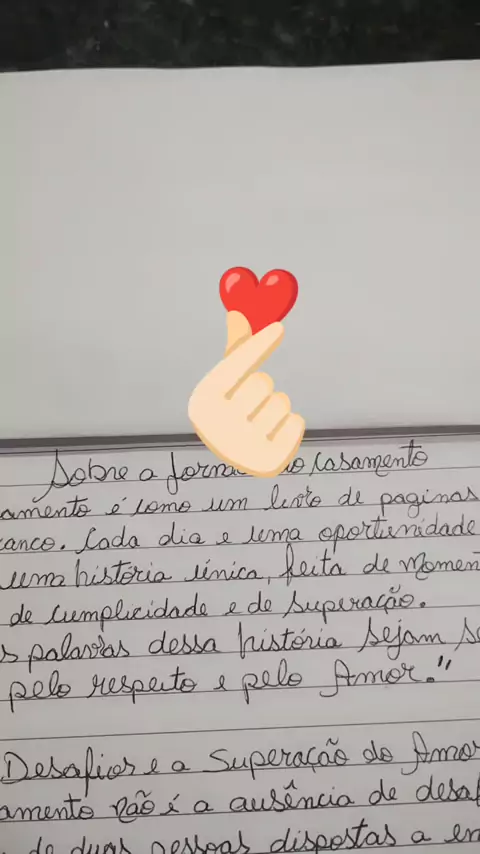 Sobre a jorna do Casamento
amento é como um livro de paginas
anco. Cada dia e uma oportunidade
uma história única, feita de momen
de cumplicidade e de superação.
s palavras dessa história sejam se
pelo respeito e pelo Amor."
Desafios e a Superação do Amor
amento não é a ausência de desaf
de duas pessoas dispostas a en